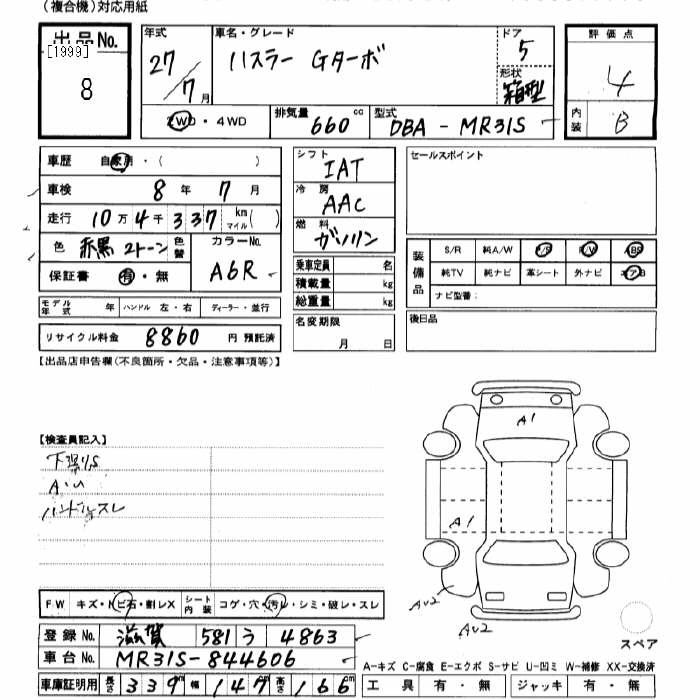 (複合機)対応用紙
出品No.
[1999]
8
年式
27/7月
車名・グレード
ハスラー Gターボ
ドア
5
形状
箱型
評価点
4
内装
B
2WD・4WD
排気量 660 cc
型式 DBA-MR31S
車歴 自家用・( )
車検 8年 7月
走行 10万4千337 km マイル( )
色 赤黒2トーン 色替
カラーNo.
A6R
保証書 有・無
モデル年式 年 ハンドル 左・右 ディーラー・並行
リサイクル料金 8860 円 預託済
シフト
IAT
冷房
AAC
燃料
ガソリン
乗車定員 名
積載量 kg
総重量 kg
名変期限
月 日
セールスポイント
装備品
S/R 純A/W P/S P/W ABS
純TV 純ナビ 革シート 外ナビ エアB
ナビ型番:
後日品
【出品店申告欄(不良箇所・欠品・注意事項等)】
【検査員記入】
下廻りS
A・U
ハンドルスレ
A1
A1
AU2
AU2
スペア
FW キズ・トビ石・割レX シート内装 コゲ・穴・汚レ・シミ・破レ・スレ
登録No. 滋賀 581 う 4863
車台No. MR31S-844606
車庫証明用 長さ 339 幅 147 高さ 166
A-キズ C-腐食 E-エクボ S-サビ U-凹ミ W-補修 XX-交換済
工具 有・無 ジャッキ 有・無